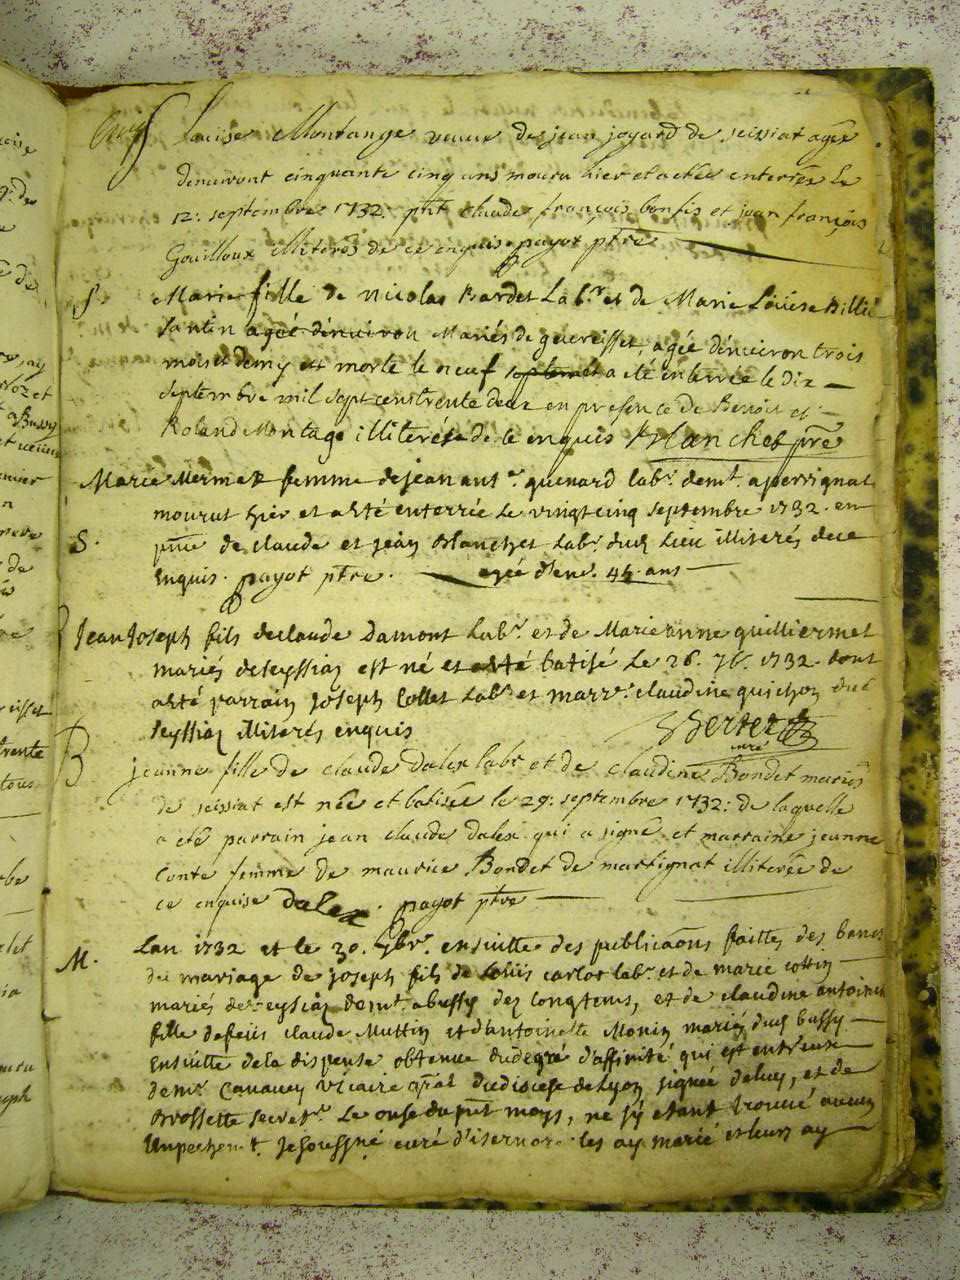 Louise Montange veuve de jean joyard de seissiat agée
denuiront cinquante cinq ans mourut hier et a étée enterrée le
12: septembre 1732. pnt claude françois bonfis et jean françois
Gouilloux illiterés de ce enquis payot ptre
S. Marie fille de Nicolas Bardet Labr. et de Marie Louise Billié
Santin agée denuiron Mariés de guereisset, agée denuiron trois
mois et demy est morte le neuf septembre a été enterrée le dix
septembre mil sept cens trente deux en presence de Benoit et
Roland Montage illiterés de ce enquis Blanchet pre
Marie Mermet femme de jean ant. quinard labr. demt. a perrignat
mourut hier et a été enterrée le vingt cinq septembre 1732. en
S. pnce de claude et jean Blanchet Labrs. dud lieu illiterés de ce
Enquis. payot ptre. agée d'env. 45. ans
Jean Joseph fils de claude Damont Labr. et de Marie anne quilliermet
mariés de seyssiaz est né et a été batisé le 26. 7br. 1732. dont
a été parrain Joseph Collet Labr. et marre. claudine quichon dud
seyssiaz illiterés enquis
curé
B jeanne fille de claude Dalex labr et de claudine Bondet mariés
de seissiat est née et batisée le 29: septembre 1732: de laquelle
a été parrain jean claude dalex qui a signé et marraine jeanne
Conte femme de maurice Bondet de martignat illiterée de
ce enquise Dalex. payot ptre
M. Lan 1732 et le 30. 7bre. ensuitte des publicaons faittes des bancs
du mariage de joseph fils de Louis carlot labr. et de marie cottin
mariés de seyssiaz demt. a bussy dez longtems, et de claudine antoinette
fille de feus claude Muttin et d'antoinette Monin mariés dud bussy
Ensuitte de la dispense obtenue du degré d'affinité qui est entr'eux
de mr. Cauauey vicaire gnal du diocese de Lyon signée de luy, et de
Brossette secretr. Le onse du pnt moys, ne s'y etant trouué aucun
Empechemt. Je soussigné curé d'isernore les ay marié et leurs ay